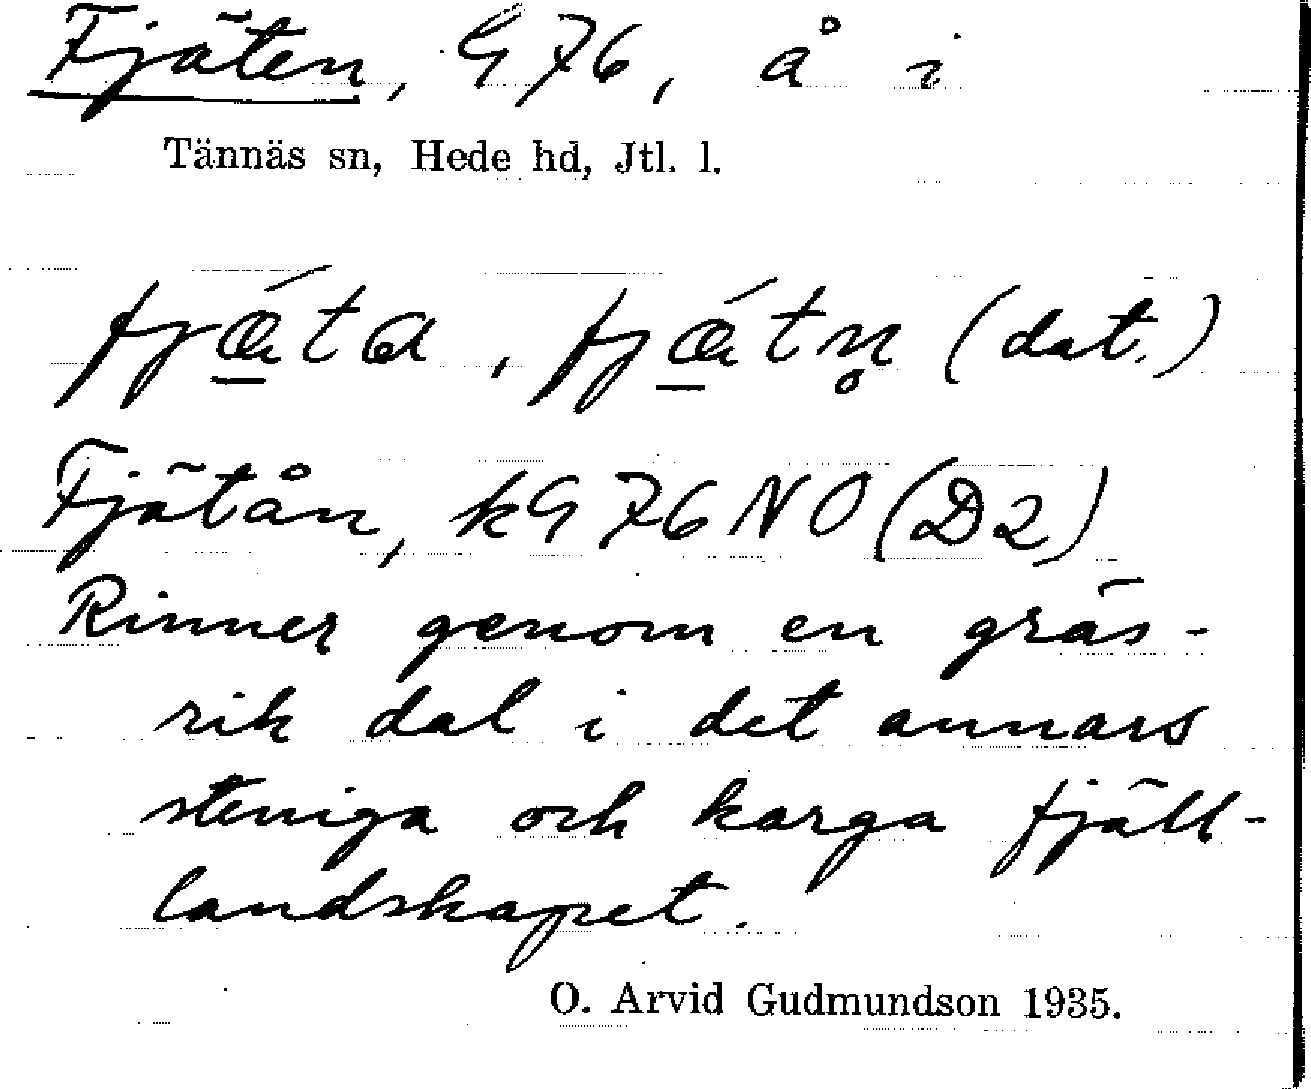 Fjäten, G 76, å i
Tännäs sn, Hede hd, Jtl. l.
fjǽ̠ta, fjǽ̠tn̥ (dat.)
Fjätån, kG 76 NO (D2)
Rinner genom en gräs-
rik dal i det annars
steniga och karga fjäll-
landskapet.
O. Arvid Gudmundson 1935.